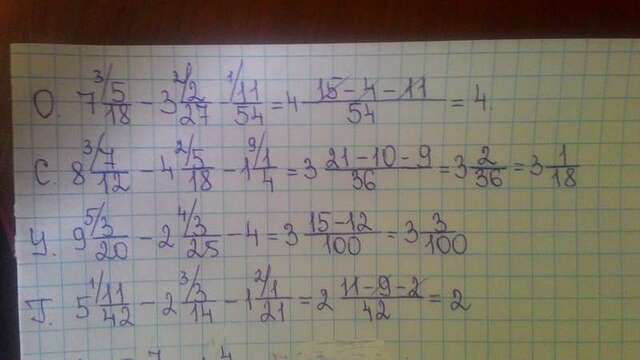 О. 7 ³⁄5/18 − 3 ²⁄2/27 ¹⁄11/54 = 4 (15−4−11)/54 = 4.
С. 8 ³⁄7/12 − 4 ²⁄5/18 − 1 ⁹⁄1/4 = 3 (21−10−9)/36 = 3 2/36 = 3 1/18
У. 9 ⁵⁄3/20 − 2 ⁴⁄3/25 − 4 = 3 (15−12)/100 = 3 3/100
Т. 5 ¹⁄11/42 − 2 ³⁄3/14 − 1 ²⁄1/21 = 2 (11−9−2)/42 = 2